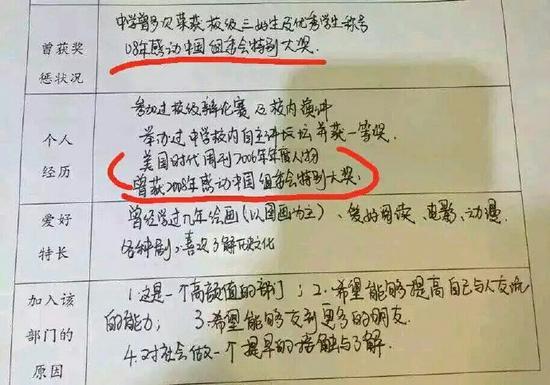 曾获奖
惩状况
中学曾多次荣获校级三好生及优秀学生称号
08年感动中国组委会特别大奖.
个人
经历
参加过校级辩论赛及校内演讲
举办过中学校内自主讲坛并获一等奖
美国时代周刊2006年年度人物
曾获2008年感动中国组委会特别大奖.
爱好
特长
曾经学过几年绘画(以国画为主)、爱好阅读、电影、动漫
各种剧,喜欢了解历史文化
加入该
部门的
原因
1.这是一个高颜值的部门; 2.希望能够提高自己与人交流
的能力; 3.希望能够交到更多的朋友.
4.对社会做一个提早的接触与了解.